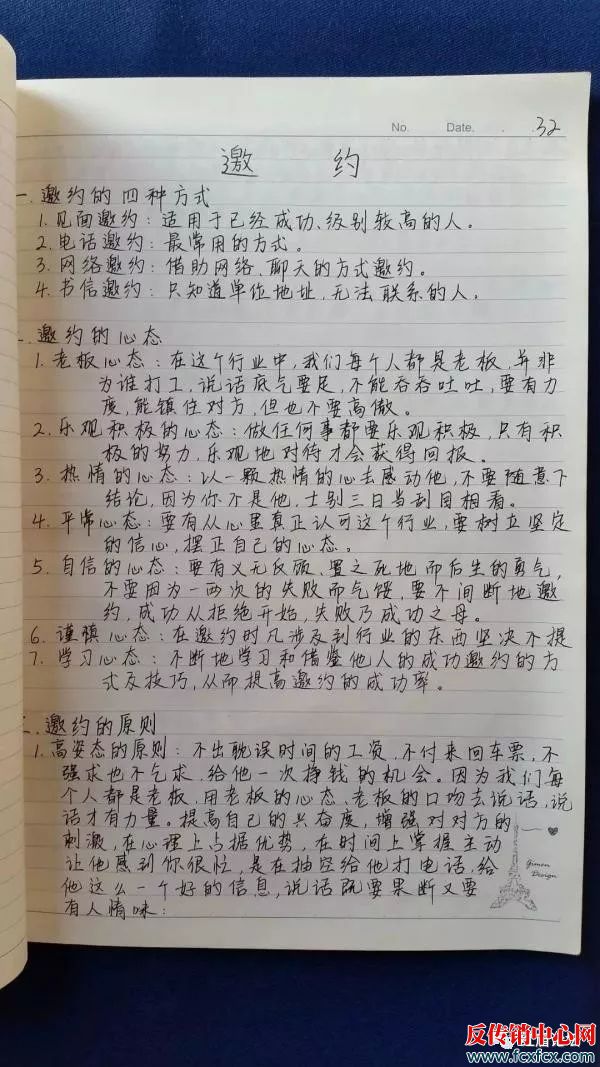 No. Date. . .32
邀 约
一.邀约的四种方式
1.见面邀约:适用于已经成功、级别较高的人。
2.电话邀约:最常用的方式。
3.网络邀约:借助网络、聊天的方式邀约。
4.书信邀约:只知道单位地址,无法联系的人。
二.邀约的心态
1.老板心态:在这个行业中,我们每个人都是老板,并非
为谁打工,说话底气要足,不能吞吞吐吐,要有力
度,能镇住对方,但也不要高傲。
2.乐观积极的心态:做任何事都要乐观积极,只有积
极的努力,乐观地对待才会获得回报。
3.热情的心态:以一颗热情的心去感动他,不要随意下
结论,因为你不是他,士别三日当刮目相看。
4.平常心态:要有从心里真正认可这个行业,要树立坚定
的信心,摆正自己的心态。
5.自信的心态:要有义无反顾,置之死地而后生的勇气,
不要因为一两次的失败而气馁,要不间断地邀
约,成功从拒绝开始,失败乃成功之母。
6.谨慎心态:在邀约时凡涉及到行业的东西坚决不提
7.学习心态:不断地学习和借鉴他人的成功邀约的方
式及技巧,从而提高邀约的成功率。
三.邀约的原则
1.高姿态的原则:不出耽误时间的工资,不付来回车票,不
强求也不乞求,给他一次挣钱的机会。因为我们每
个人都是老板,用老板的心态、老板的口吻去说话,说
话才有力量。提高自己的兴奋度,增强对对方的
刺激,在心理上占据优势,在时间上掌握主动
让他感到你很忙,是在抽空给他打电话,给
他这么一个好的信息,说话既要果断又要
有人情味:
Gimen
Design
反传销中心网
www.fcxfcx.com